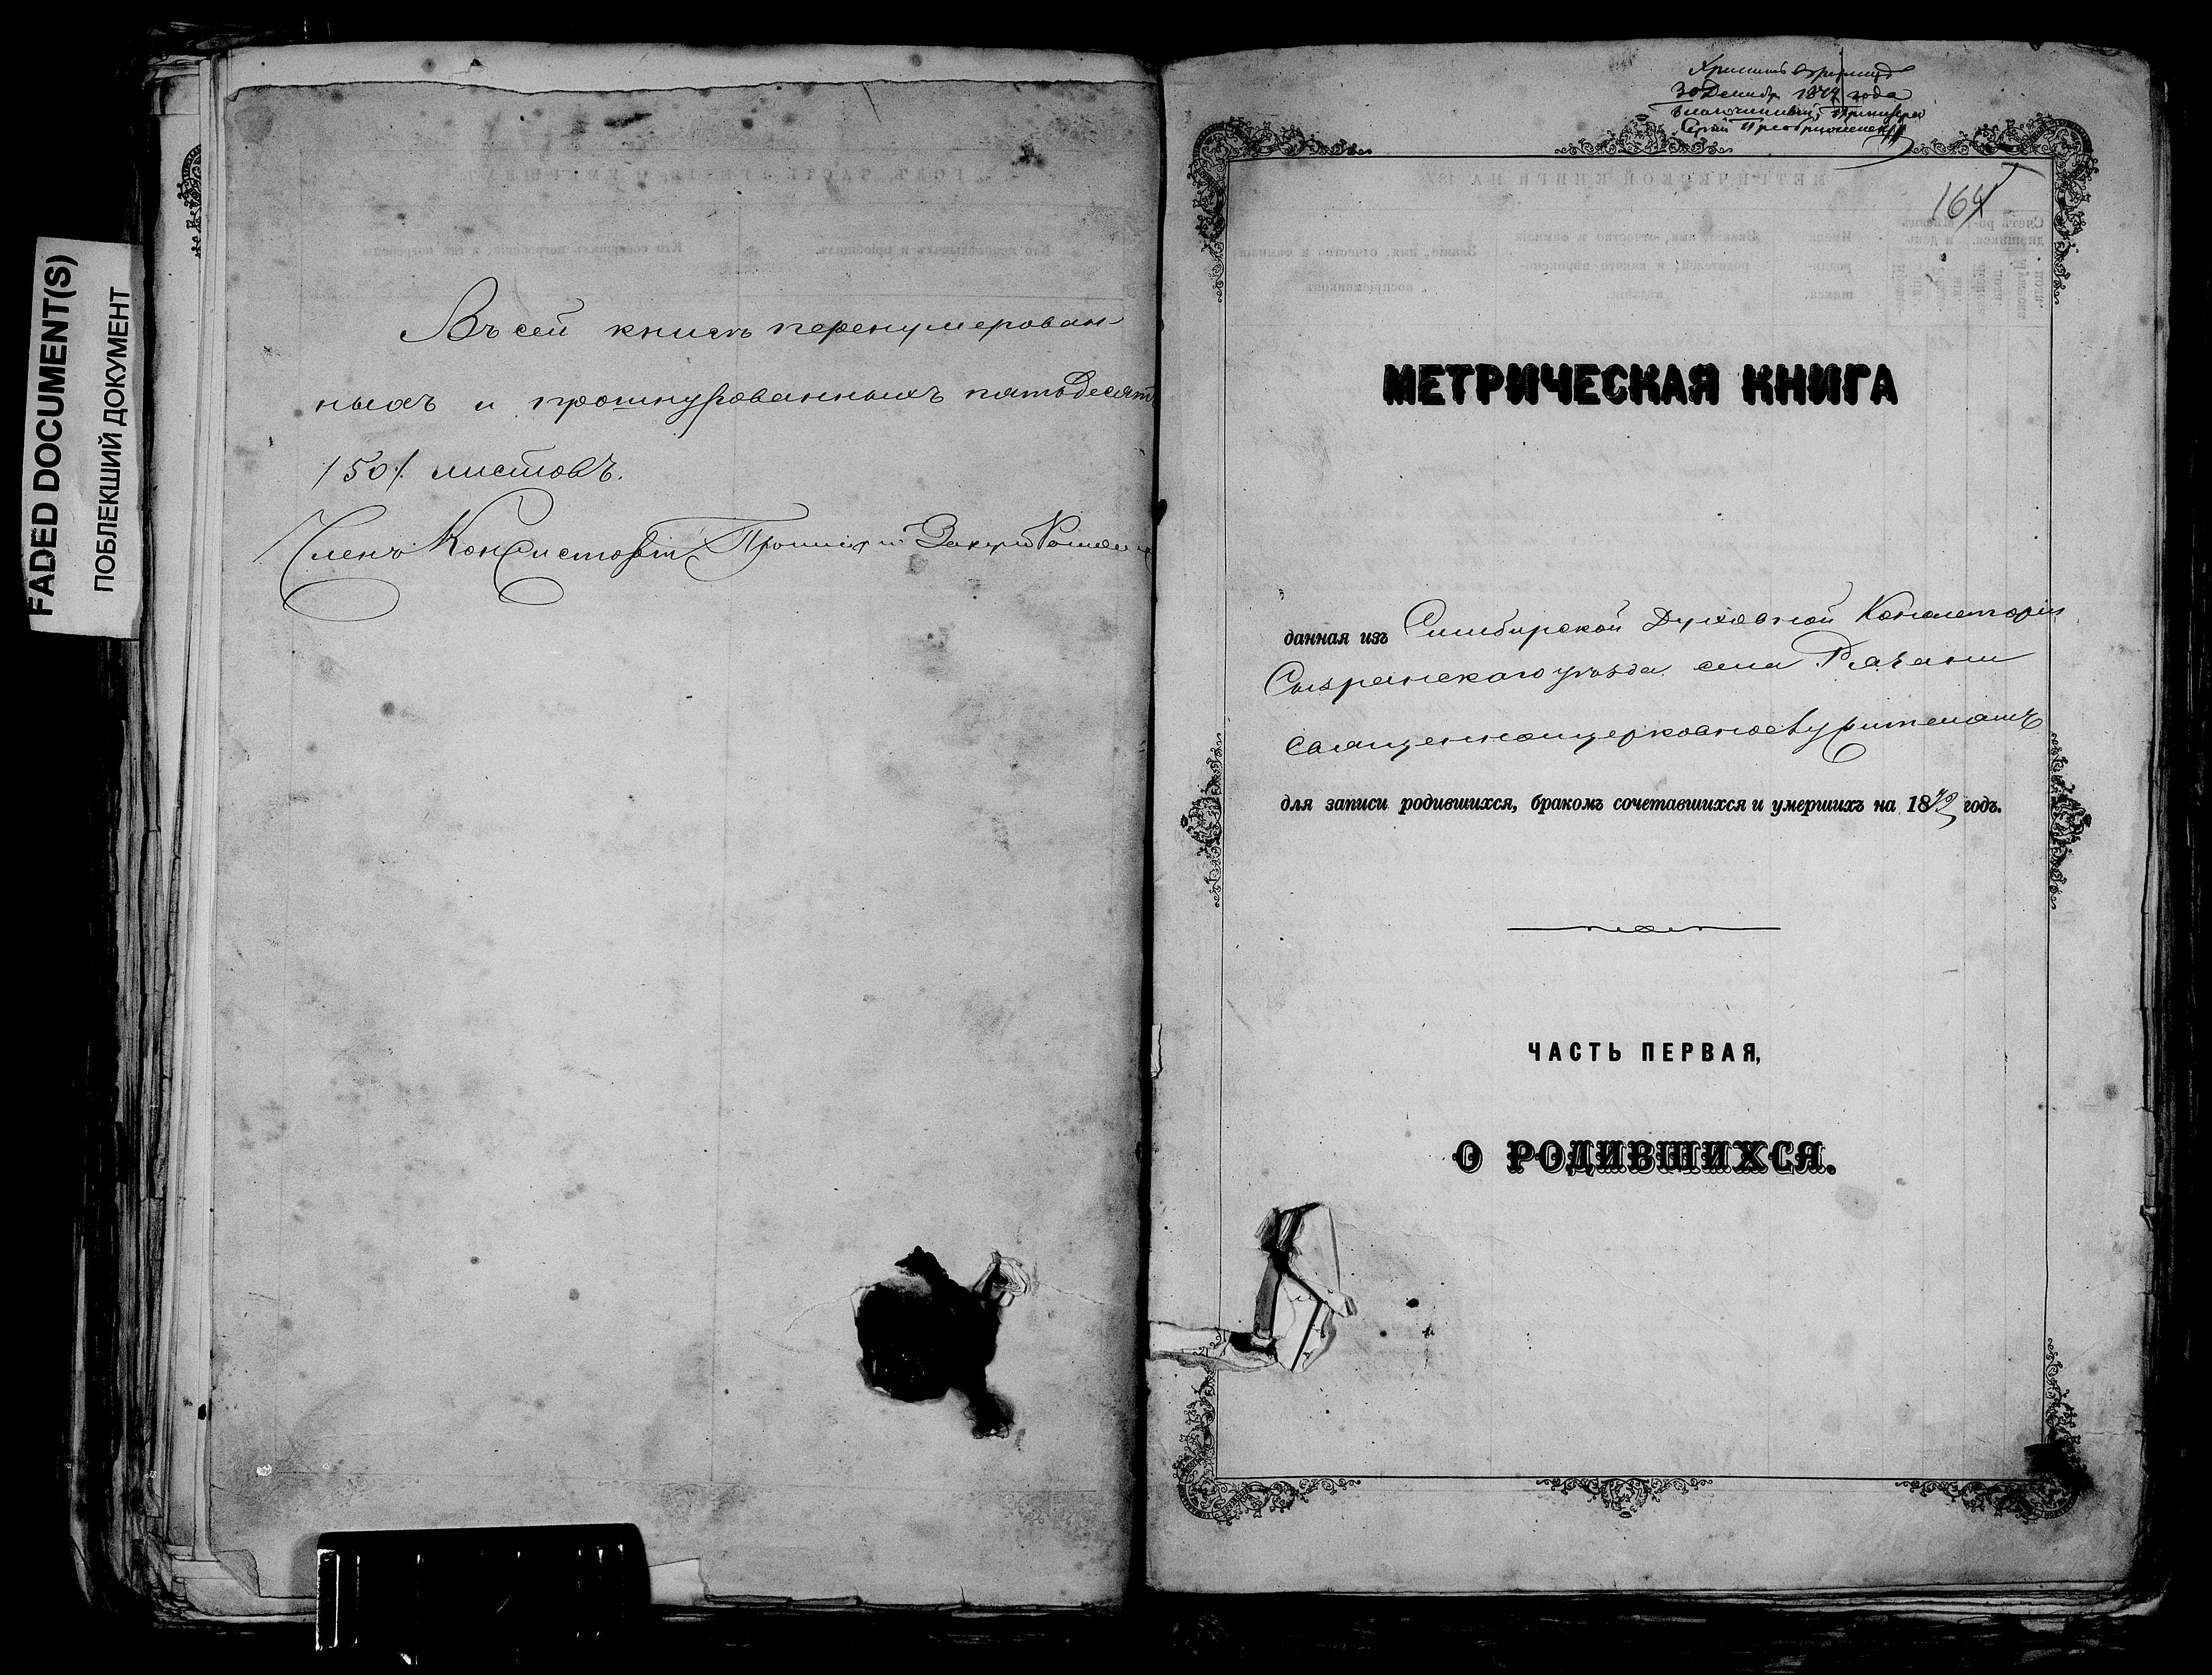 FADED DOCUMENT(S)
ПОБЛЕКШИЙ ДОКУМЕНТ
Въ сей книгѣ перенумерован-
ныхъ и прошнурованныхъ пятьдесятъ
/50/. листовъ.
Членъ Консисторіи Протоіерей
30 Декабр 1877 года
Благочинный,
Сергій Преображенскій
164
МЕТРИЧЕСКАЯ КНИГА
данная изъ Симбирской Духовной Консисторіи
Сызранскаго уѣзда села Рязани
священноцерковнослужителямъ
для записи родившихся, бракомъ сочетавшихся и умершихъ на 18 годъ.
ЧАСТЬ ПЕРВАЯ,
О РОДИВШИХСЯ.